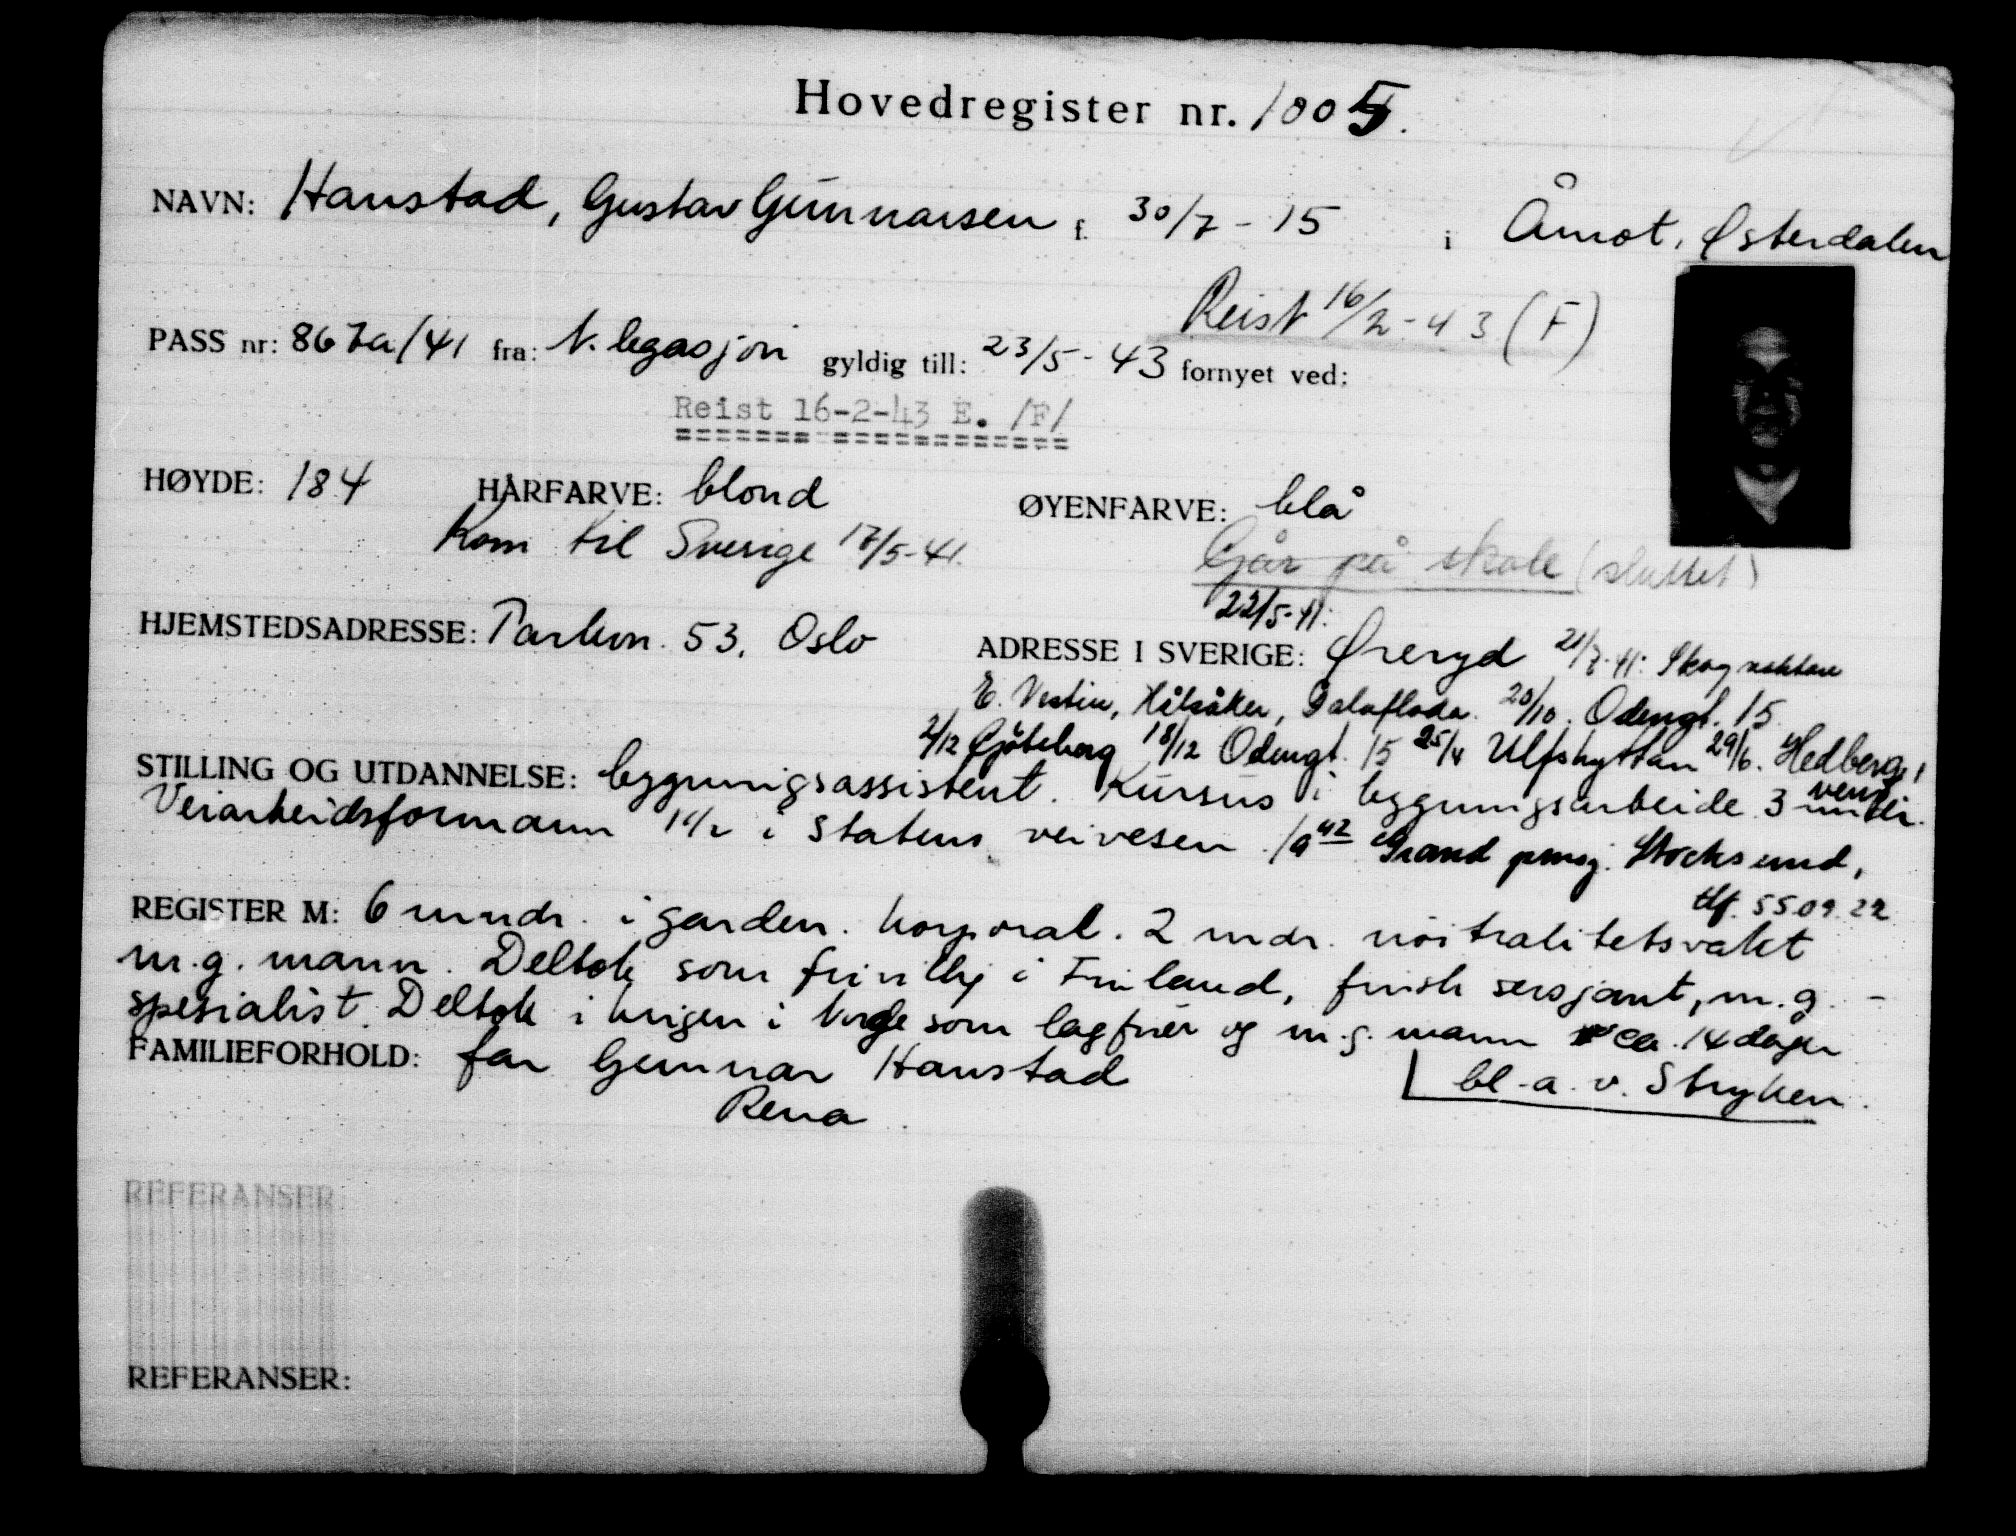 Hovedregister nr. 1005.
NAVN: Hanstad, Gustav Gunnarsen f. 30/7 - 15 i Åmot, Østerdalen
Reist 16/2 - 43 (F)
PASS nr: 867a/41 fra: N. legasjon gyldig till: 23/5 - 43 fornyet ved:
Reist 16-2-43 E. /F/
HØYDE: 184 HÅRFARVE: blond ØYENFARVE: blå
Kom til Sverige 17/5-41. Går på skole (sluttet)
22/5-41:
HJEMSTEDSADRESSE: Parkvn. 53, Oslo ADRESSE I SVERIGE: Øreryd 21/7-41: Skogvaktare
E. Vestin, Hålsåker, Dalafloda. 20/10. Odengt. 15
2/12 Gøteborg 18/12 Odengt. 15 25/4 Ulfshyttan 29/6. Hedberg,
STILLING OG UTDANNELSE: bygningsassistent. Kursus i bygningsarbeide 3 mndr.
Veiarbeidsformann 1 1/2 i Statens veivesen. 1/9 42 Grand pensj. Stocksund,
tlf. 55 09 22
REGISTER M: 6 mndr. i garden. korporal. 2 mdr. nøitralitetsvakt
m.g. mann. Deltok som frivillig i Finland, finsk sersjant, m.g. -
spesialist. Deltok i krigen i Norge som lagfører og m.g. mann ca. 14 dager
FAMILIEFORHOLD: far Gunnar Hanstad bl. a. v. Stryken.
Rena.
REFERANSER
REFERANSER: